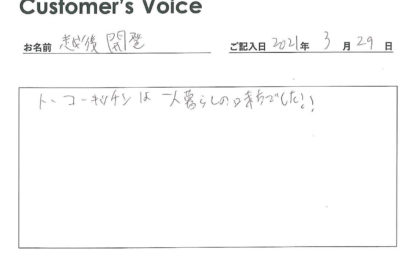 Customer's Voice
お名前 越後 開登 ご記入日 2021年 3月 29日
トーコーキッチンは一人暮らしの味方でした!!